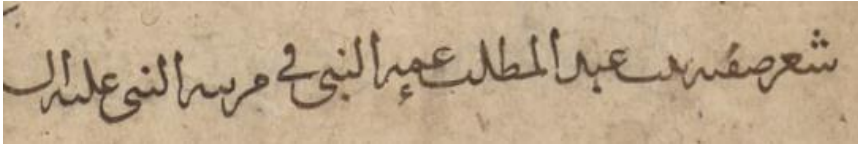 شعر صفيه بنت عبد المطلب عمة النبي في مرثيه النبي عليه ال